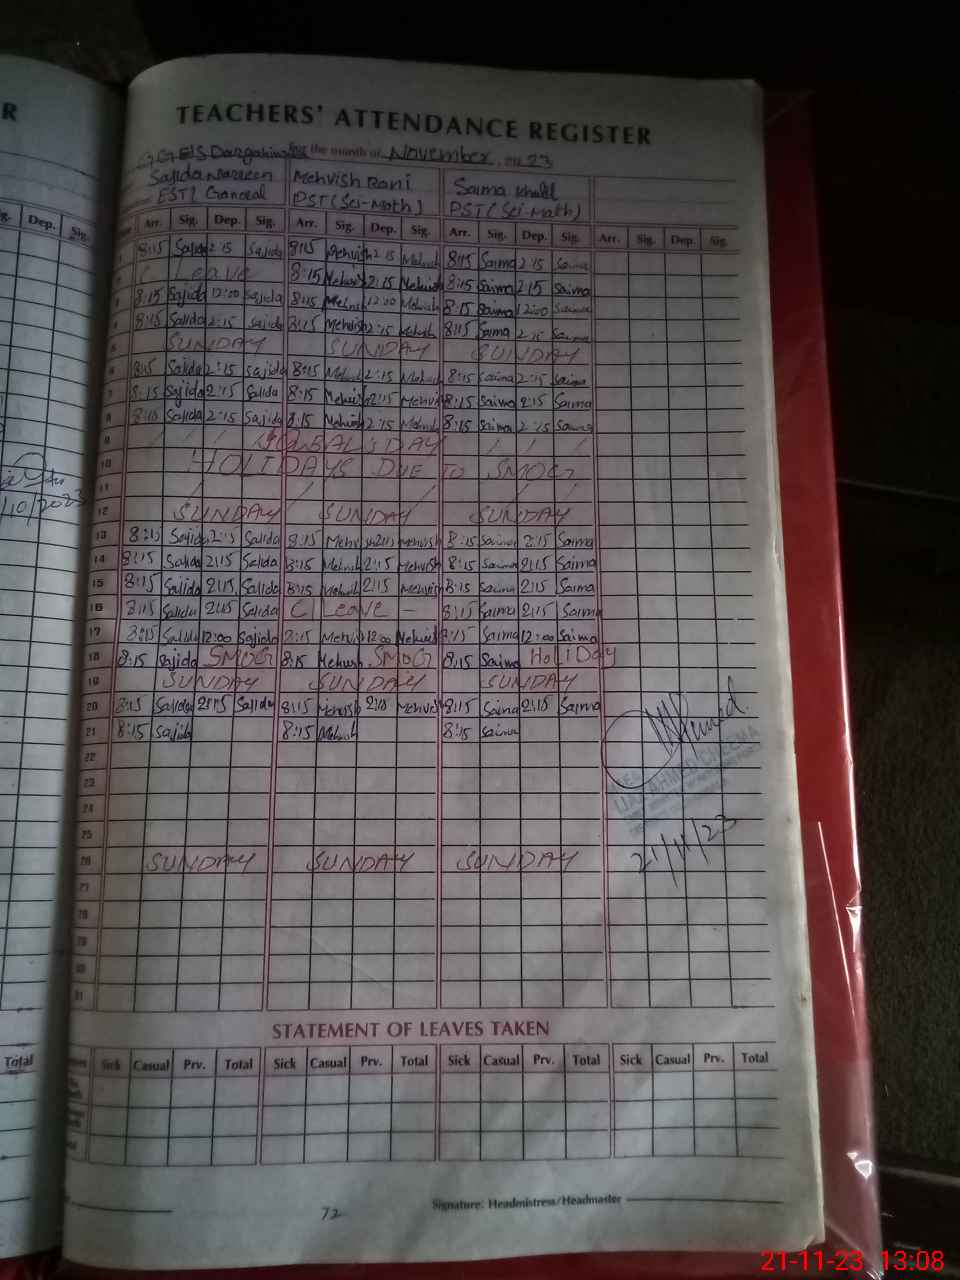 R
TEACHERS' ATTENDANCE REGISTER
for the month of November, 2023
Sajida Nasreen Mehvish Rani Saima Khalil
EST/ General PST (Sci-Math) PST (Sci-Math)
Dep. Sig. Arr. Sig. Dep. Sig. Arr. Sig. Dep. Sig. Arr. Sig. Dep. Sig. Arr. Sig. Dep. Sig.
1 8:15 Sajida 2:15 Sajida 8:15 Mehvish 2:15 Mehvish 8:15 Saima 2:15 Saima
2 C Leave 8:15 Mehvish 2:15 Mehvish 8:15 Saima 2:15 Saima
3 8:15 Sajida 12:00 Sajida 8:15 Mehvish 12:00 Mehvish 8:15 Saima 12:00 Saima
4 8:15 Sajida 2:15 Sajida 8:15 Mehvish 2:15 Mehvish 8:15 Saima 2:15 Saima
5 SUNDAY SUNDAY SUNDAY
6 8:15 Sajida 2:15 Sajida 8:15 Mehvish 2:15 Mehvish 8:15 Saima 2:15 Saima
7 8:15 Sajida 2:15 Sajida 8:15 Mehvish 2:15 Mehvish 8:15 Saima 2:15 Saima
8 8:15 Sajida 2:15 Sajida 8:15 Mehvish 2:15 Mehvish 8:15 Saima 2:15 Saima
9 IQBAL'S DAY
10 HOLIDAYS DUE TO SMOG
11
12 SUNDAY SUNDAY SUNDAY
13 8:15 Sajida 2:15 Sajida 8:15 Mehvish 2:15 Mehvish 8:15 Saima 2:15 Saima
14 8:15 Sajida 2:15 Sajida 8:15 Mehvish 2:15 Mehvish 8:15 Saima 2:15 Saima
15 8:15 Sajida 2:15 Sajida 8:15 Mehvish 2:15 Mehvish 8:15 Saima 2:15 Saima
16 8:15 Sajida 2:15 Sajida C Leave – 8:15 Saima 2:15 Saima
17 8:15 Sajida 12:00 Sajida 8:15 Mehvish 12:00 Mehvish 8:15 Saima 12:00 Saima
18 8:15 Sajida SMOG 8:15 Mehvish SMOG 8:15 Saima HoLIDay
19 SUNDAY SUNDAY SUNDAY
20 8:15 Sajida 2:15 Sajida 8:15 Mehvish 2:15 Mehvish 8:15 Saima 2:15 Saima
21 8:15 Sajida 8:15 Mehvish 8:15 Saima
22
23
24
25
26 SUNDAY SUNDAY SUNDAY
27
28
29
30
31
/10/2023
AHMED CHEEMA
21/11/23
STATEMENT OF LEAVES TAKEN
Total Sick Casual Prv. Total Sick Casual Prv. Total Sick Casual Prv. Total Sick Casual Prv. Total
Signature: Headmistress/Headmaster
72
21-11-23 13:08